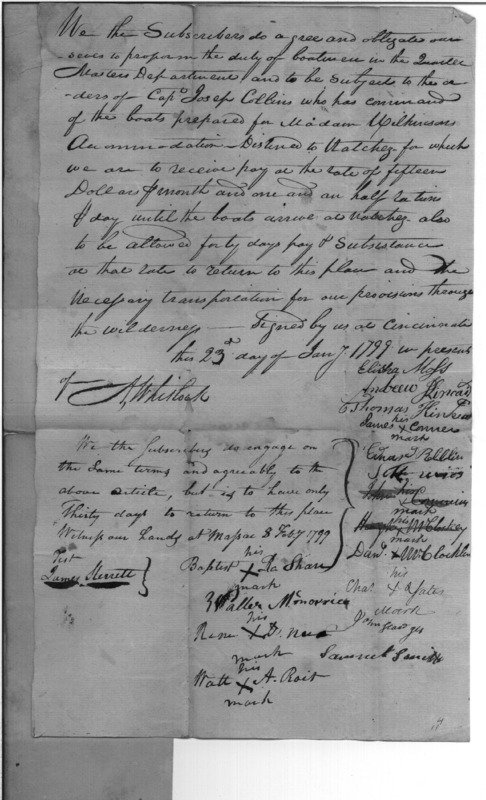 We the Subscribers do agree and obligate our
-selves to proporm the duty of boatmen in the Quarter
Masters Department and to be Subject to the o
-ders of Cap.t Josep Collins who has command
of the boats prepared for Madam Wilkinsons
Accommodation Distined to Natchez for which
we are to receive pay at the rate of fifteen
Dollars P month and one and an half rations
P day until the boats arrive at Natchez also
to be allowed forty days pay & Subsistance
at that rate to return to this place and the
necessary transportation for our provisions through
the wilderness — Signed by us at Cincinnati
this 23d day of Jany 1799 in present
of A Whitlock
Elisha Moss
Andrew
Thomas
James his x Conner
mark
We the Subscribers do engage on
the same terms and agreeably to the
above article, but is to have only
Thirty days to return to this place
Witness our hands at Massac 8 Feby 1799
Test
James Sterrett
his
Baptist x La Shan
mark
his
x
mark
his
Watt x A. Roit
mark
his
mark
his
Hugh x McCloskey
mark
Danl x McClocklin
his
Chas x Yates
mark
John Georges
Samuel Smith